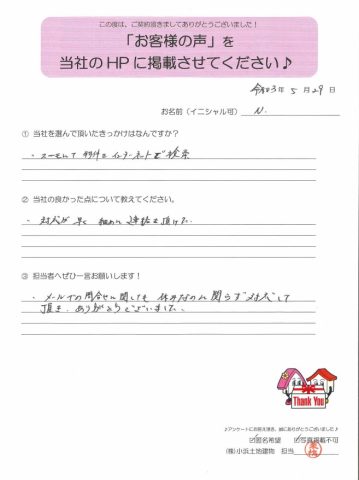 この度は、ご契約頂きましてありがとうございました！
「お客様の声」を
当社のHPに掲載させてください♪
令和3年 5月29日
お名前（イニシャル可） N.
① 当社を選んで頂いたきっかけはなんですか？
・スーモにて 物件を インターネットで検索
② 当社の良かった点について教えてください。
・対応が 早く 細めに 連絡を頂けた.
③ 担当者へぜひ一言お願いします！
・メールでの問合せに関しても 休みなのに関らず対応して
頂き、ありがとうございました。
Thank You
♪アンケートにお答え頂き、誠にありがとうございました♪
☑匿名希望 ☑写真掲載不可
(株)小浜土地建物 担当